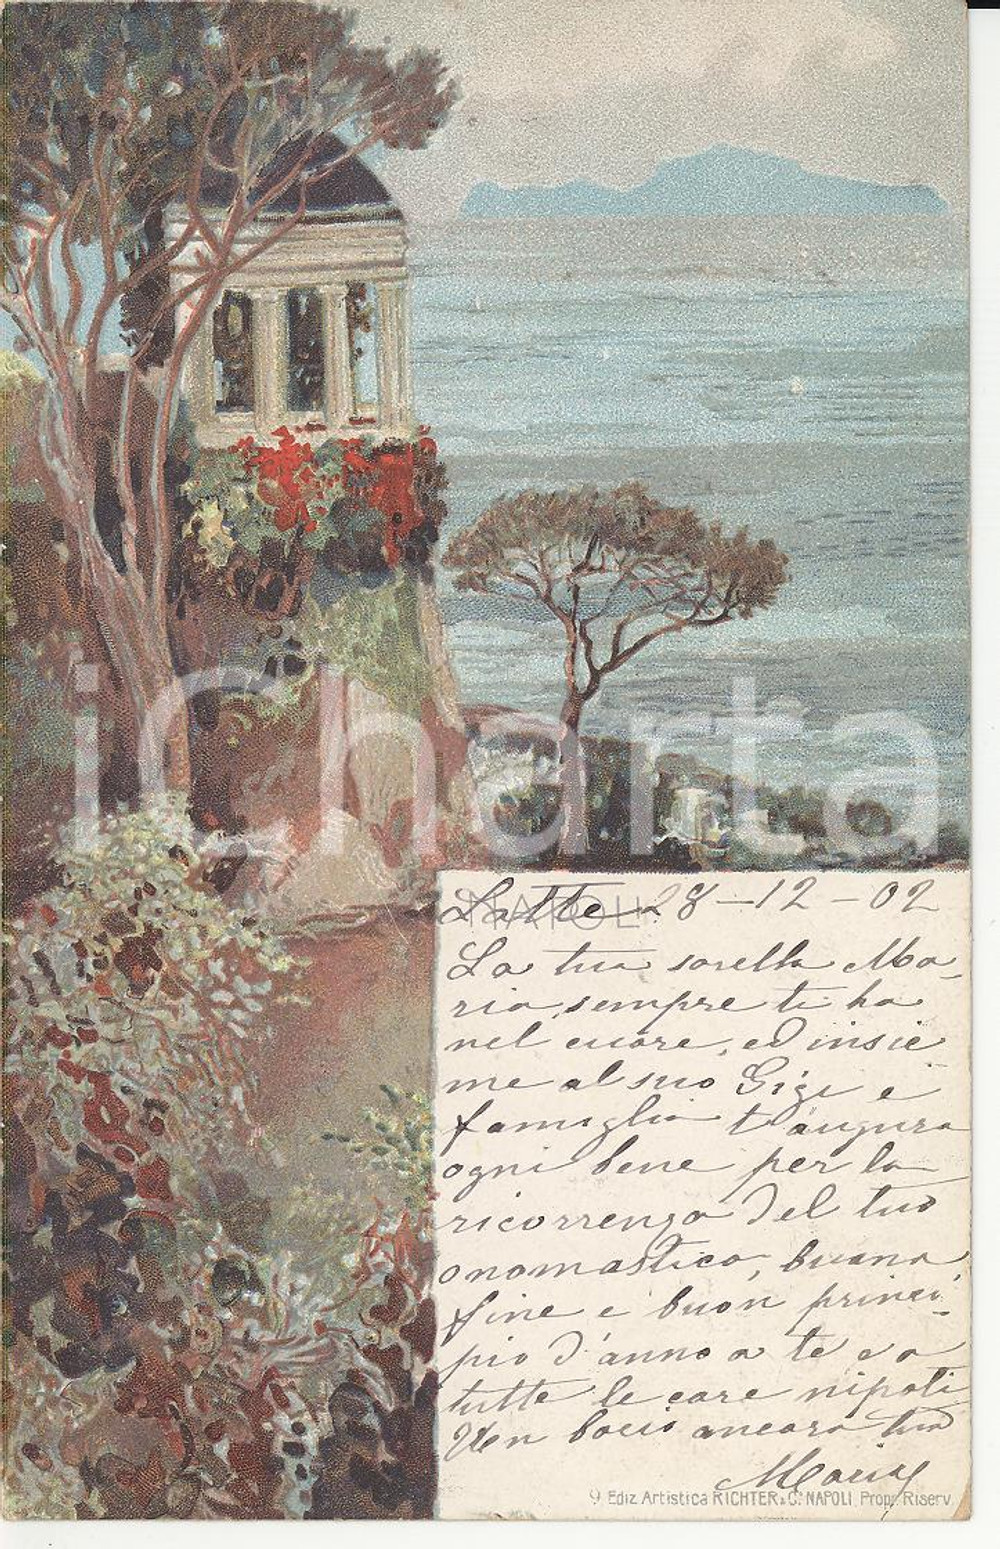 iCharta
NAPOLI
Latte 28-12-02
La tua sorella Ma-
ria, sempre ti ha
nel cuore, ed insie
me al suo Gigi e
famiglia t'augura
ogni bene per la
ricorrenza del tuo
onomastico, buona
fine e buon princi-
pio d'anno a te e a
tutte le care nipoti
Un bacio ancora tua
Maria
9 Ediz. Artistica RICHTER & C. NAPOLI, Propr. Riserv.